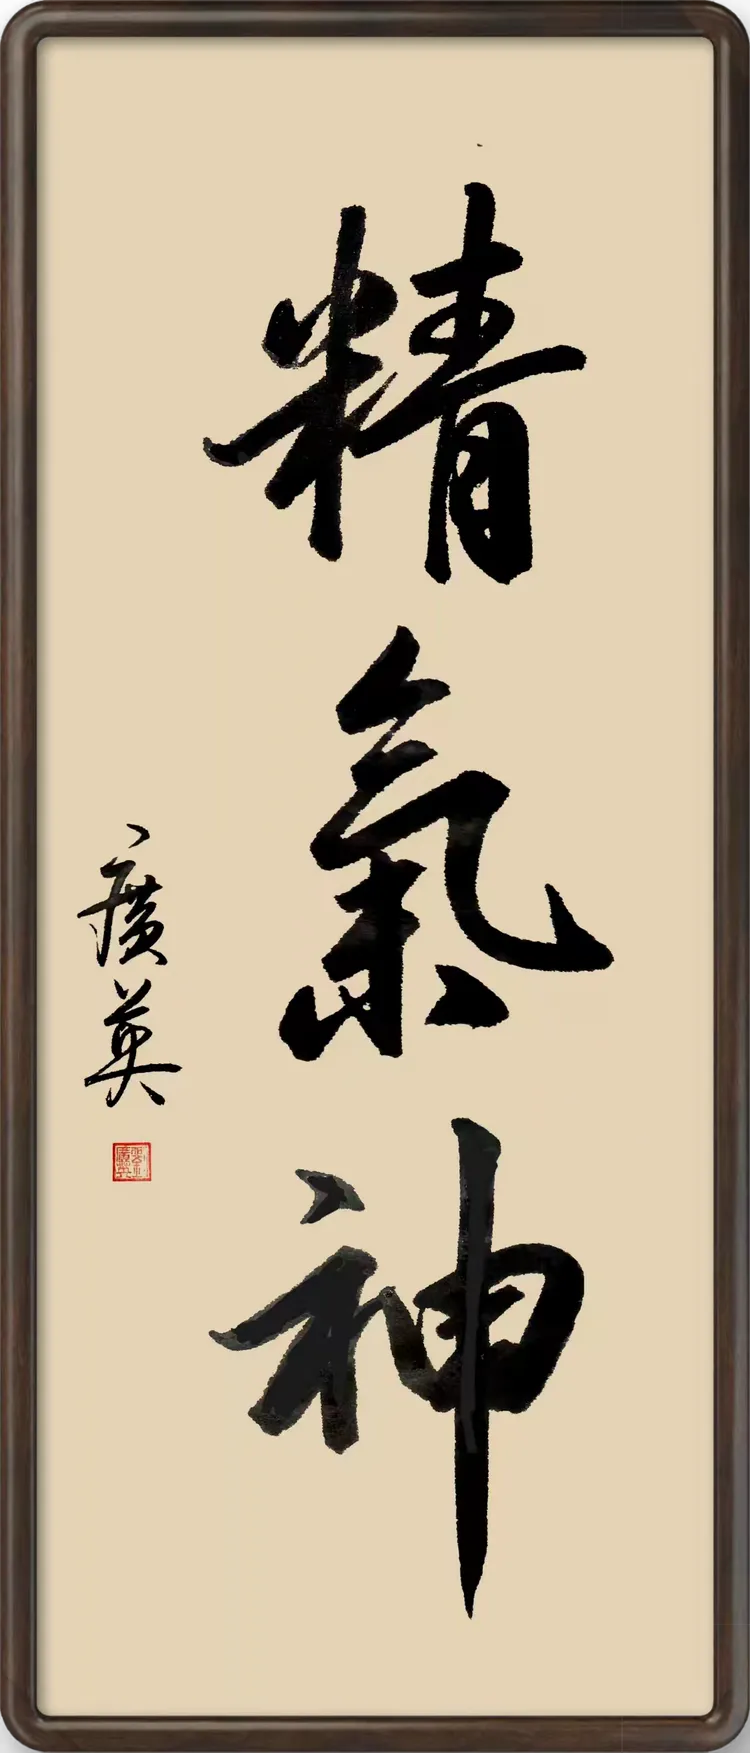 精氣神
廣英